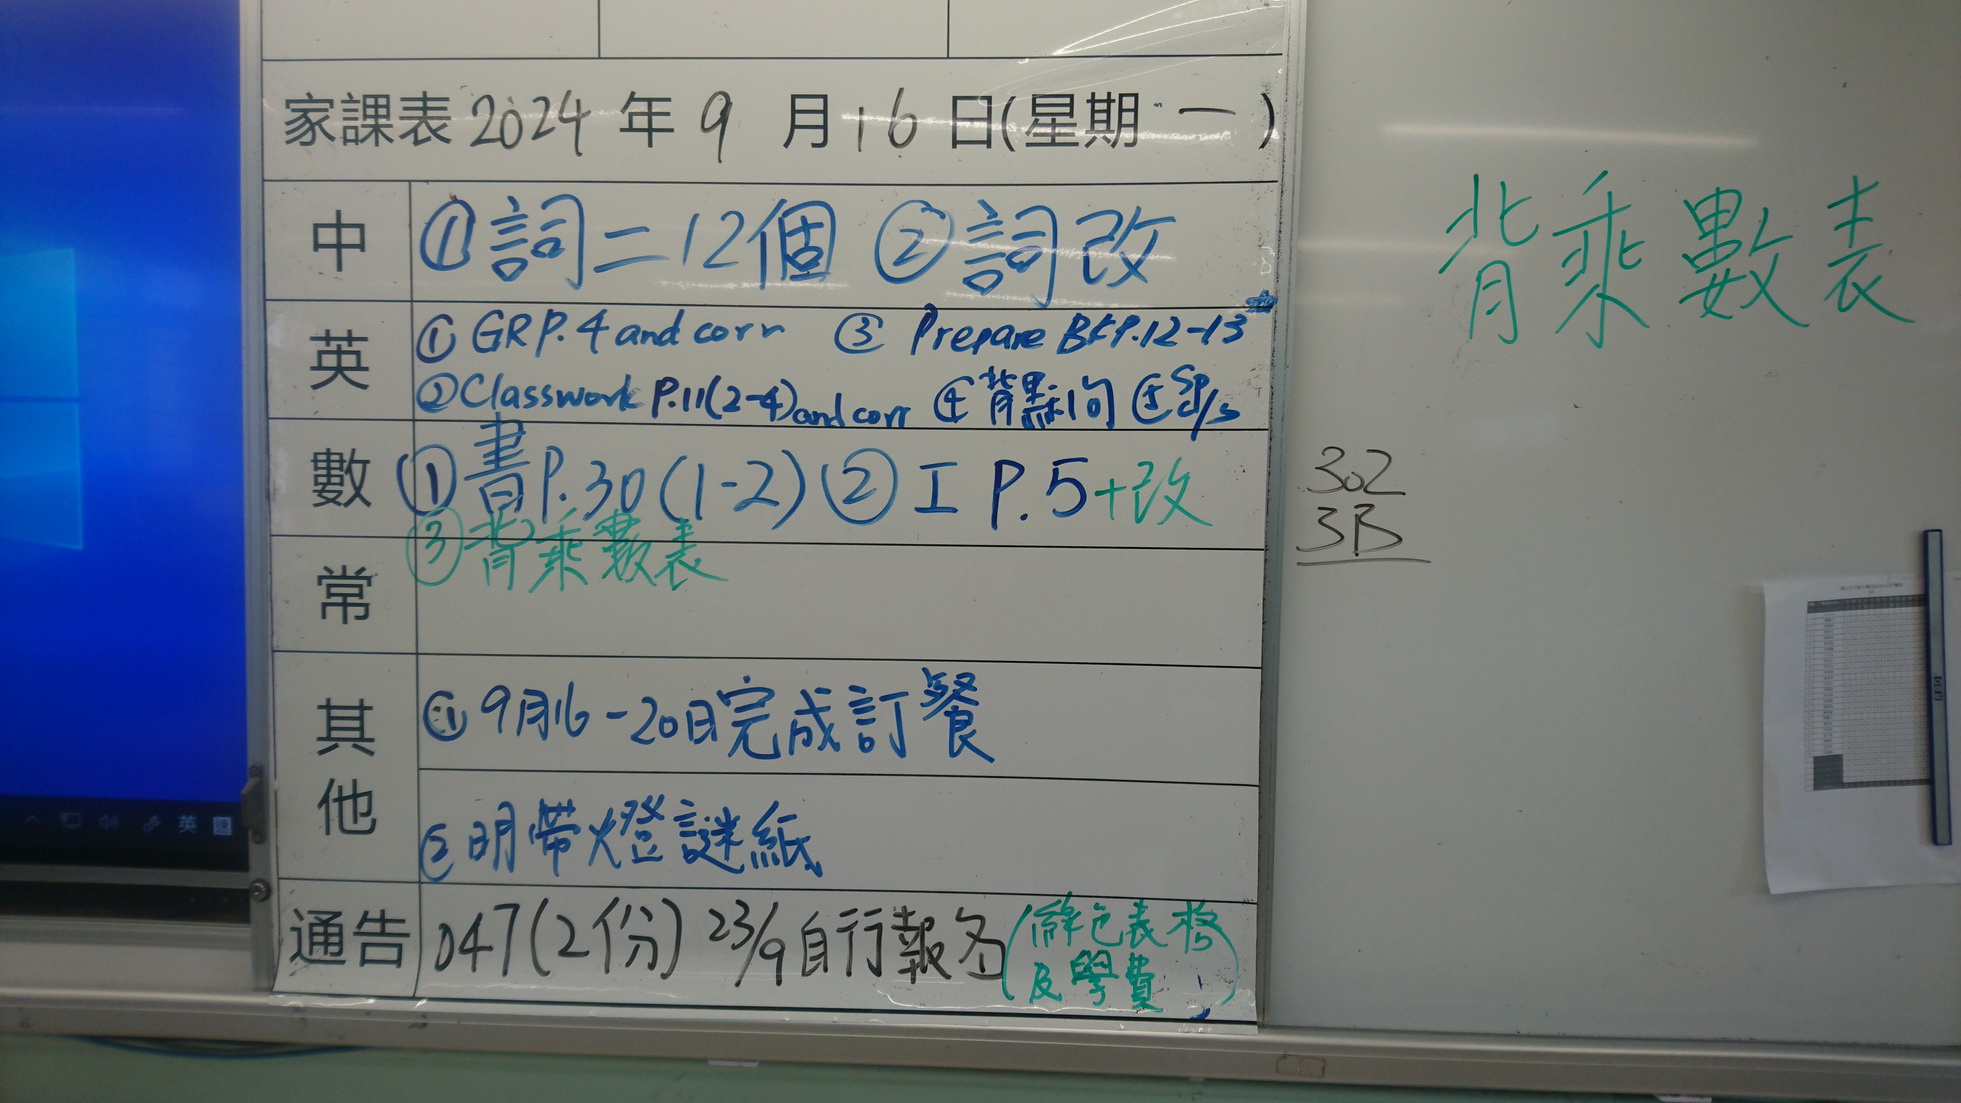 家課表 2024 年 9 月 16 日(星期 一 )
中 ① 詞二12個 ② 詞改
英 ① GR P.4 and corr ③ Prepare BK P.12-13
② Classwork P.11(2-4) and corr ④ 背默1向
數 ① 書P.30(1-2) ② 工 P.5+改
③ 背乘數表
常
其他 ① 9月16-20日完成訂餐
② 明帶燈謎紙
通告 047(2份) 23/9 自行報名(綠色表格
及學費)
背乘數表
302
3B
英